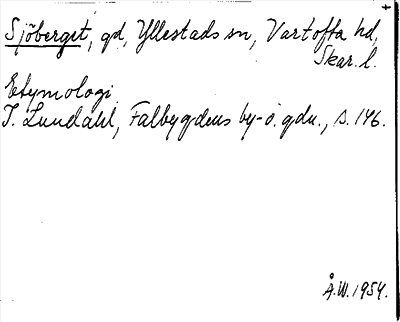 Sjöberget, gd, Yllestads sn, Vartofta hd,
Skar. l.
Etymologi
I. Lundahl, Falbygdens by- o. gdn., s. 146.
Å.W. 1954.